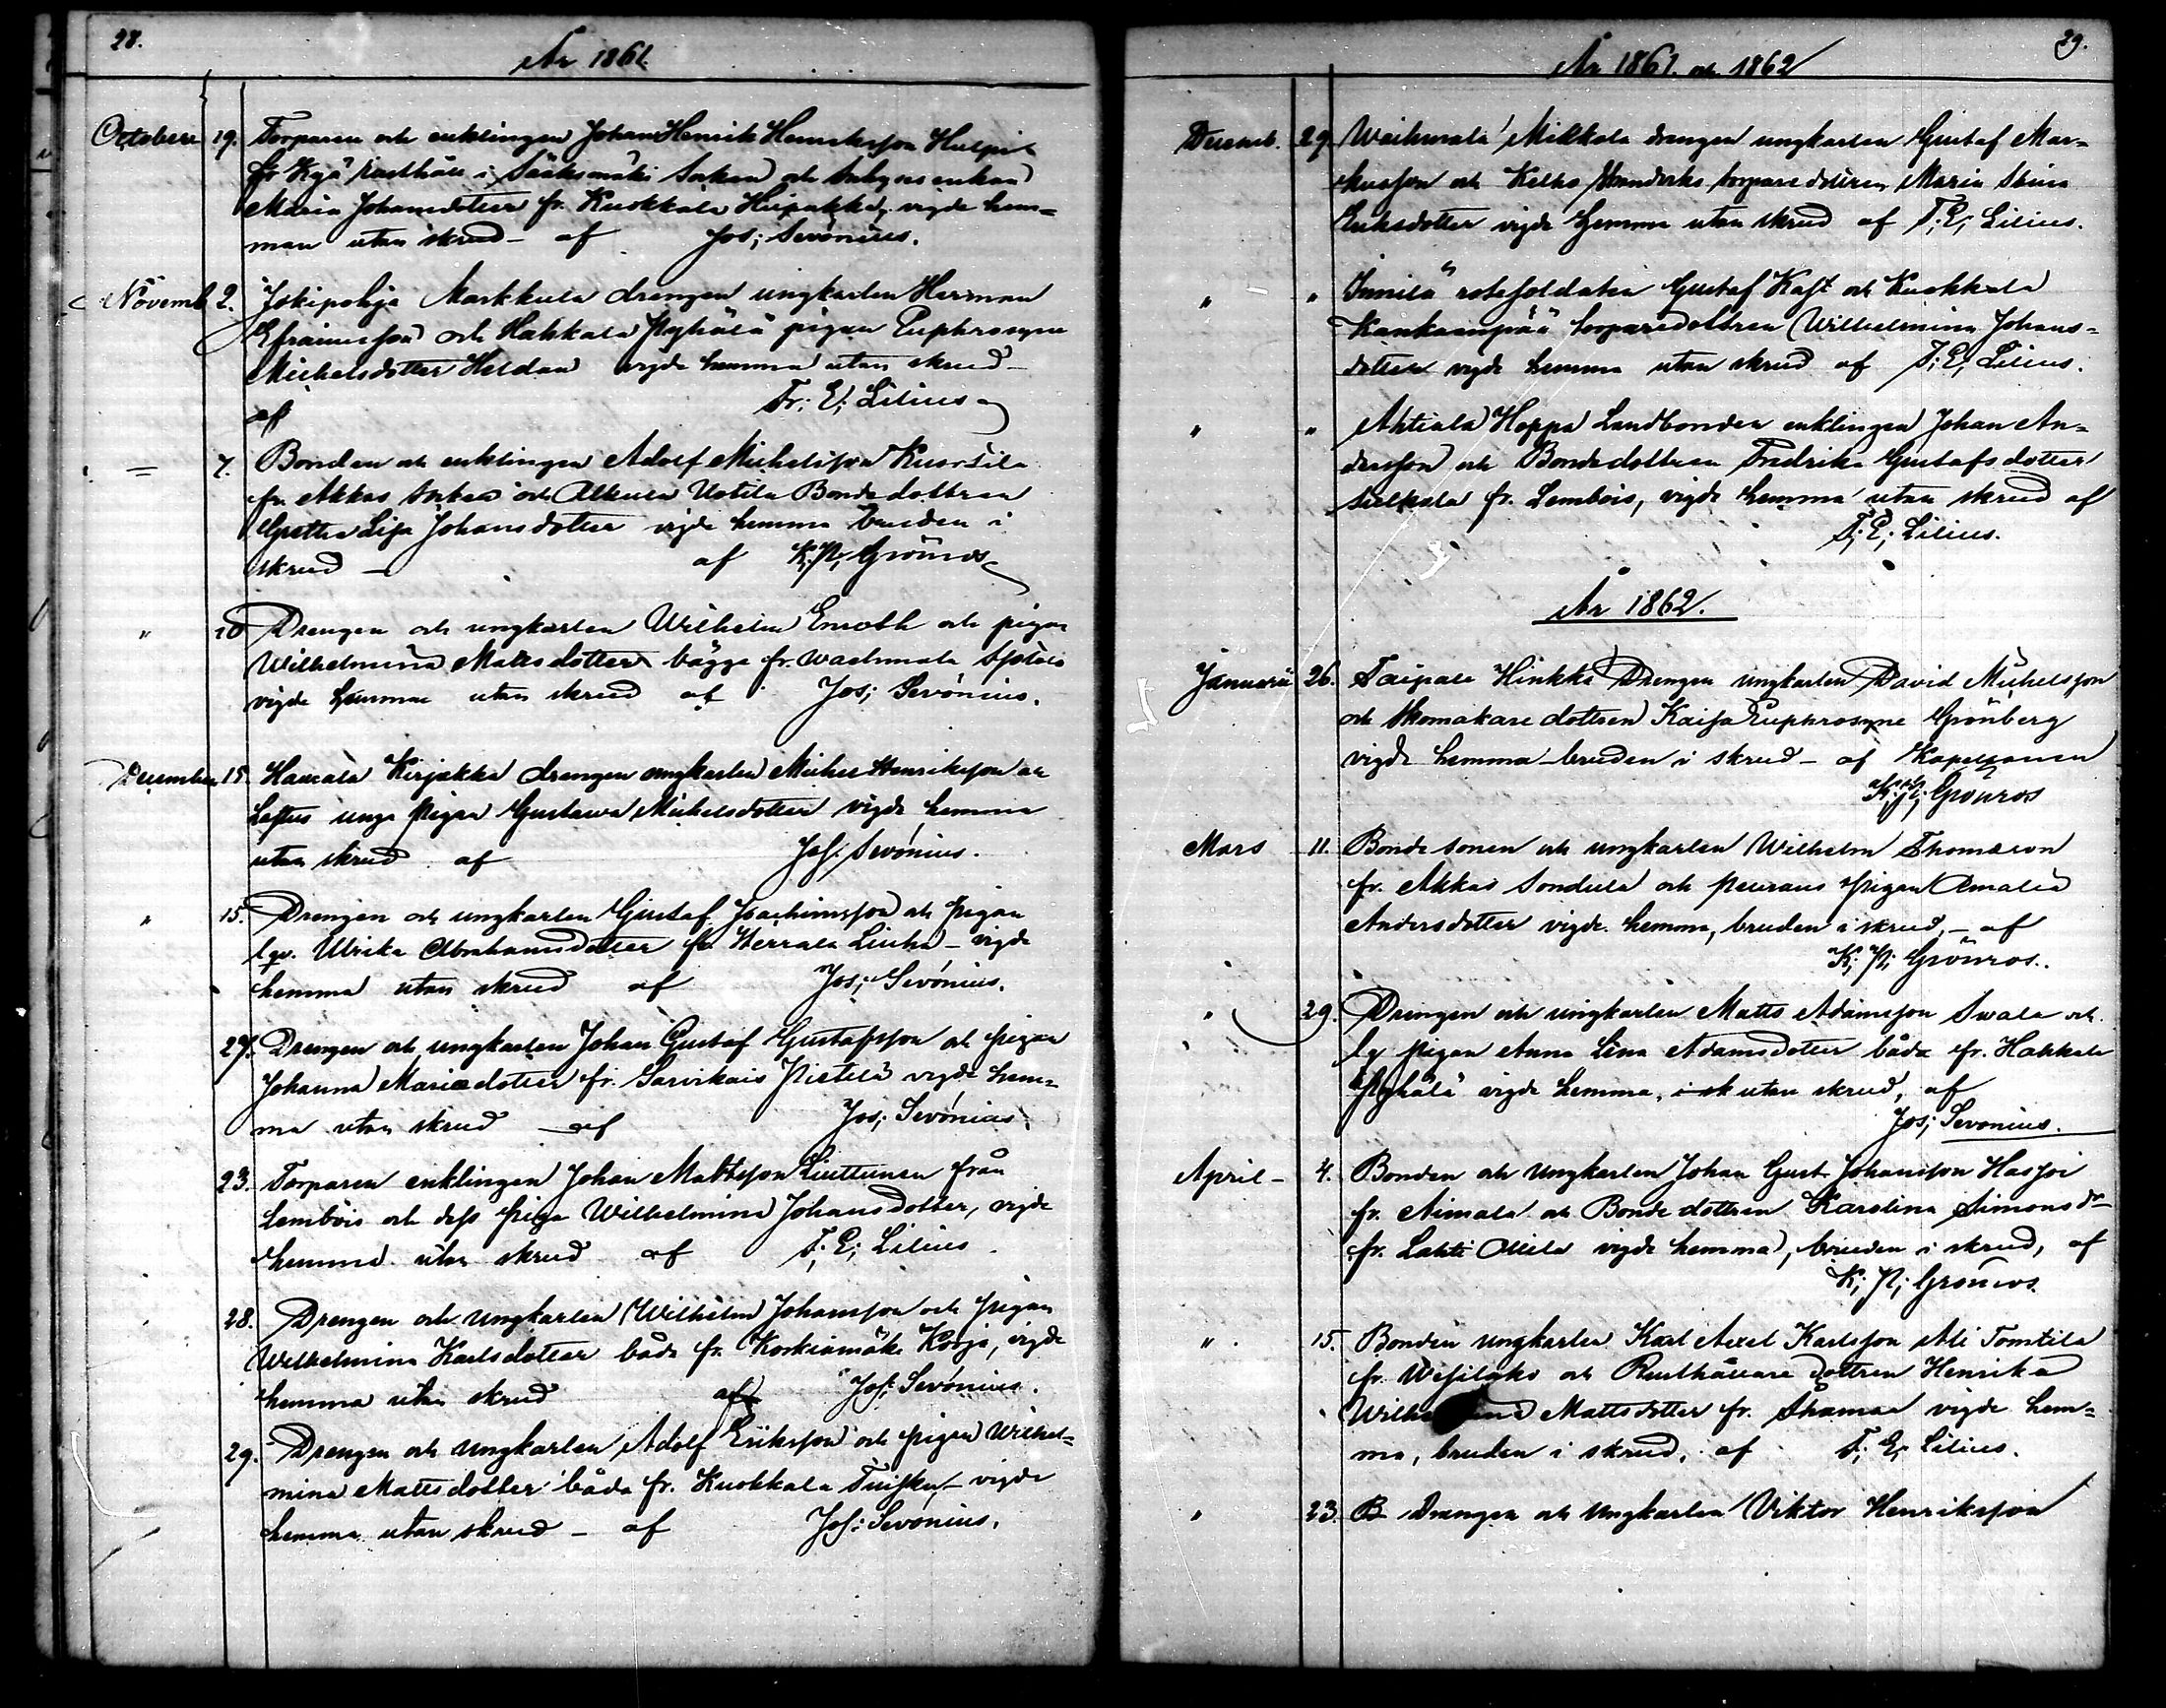 28.
År 1861.
Octobere 19. Torparen och enklingen Johan Henrik Henriksson
fr. i Sääksmäki Socken och enkan
Maria Johansdotter fr. Kuokkala vigde hem=
man utan skrud – af Jos; Sevónius.
Novemb 2. Jokipohja Markkula drengen ungkarlen Herman
Efraimsson och Hakkala Pyhälä pigan Euphrosyne
Michelsdotter vigde hemma utan skrud –
af Fr; E; Lilius
= 7. Bonden och enklingen Adolf Michelsson
fr. Akkas Socken och Alkula Uotila Bonde dottren
Gretha Lisa Johansdotter vigde hemma bruden i
skrud – af K; N; Grönros
" 10 Drengen och ungkarlen Wilhelm Enroth och pigan
Wilhelmina Mattsdotter bägge fr. Wachmala
vigde hemma utan skrud af Jos; Sevónius.
December 15. Haurala Kirjakka drengen ungkarlen Michel Henriksson och
unga pigan Gustava Michelsdotter vigde hemma
utan skrud af Jos; Sevónius.
" 15. Drengen och ungkarlen Gustaf Joachimsson och pigan
lqv. Ulrika Abrahamsdotter fr. Herrala – vigde
hemma utan skrud af Jos; Sevónius.
27. Drengen och ungkarlen Johan Gustaf Gustafsson och pigan
Johanna Mariædotter fr. Sarvikais Pietilä vigde hem=
ma utan skrud – af Jos; Sevónius.
23. Torparen enklingen Johan Mattsson från
Lembois och dess piga Wilhelmina Johansdotter, vigde
hemma utan skrud af F; E; Lilius.
28. Drengen och Ungkarlen Wilhelm Johansson och pigan
Wilhelmina Karlsdotter båda fr. Koskiamäki vigde
hemma utan skrud af Jos; Sevónius.
29. Drengen och Ungkarlen Adolf Eriksson och pigan Wilhel=
mina Mattsdotter båda fr. Kuokkala – vigde
hemma utan skrud – af Jos; Sevónius.
29.
År 1861. och 1862
Decemb. 29 Mikkola drengen ungkarlen Gustaf Mar=
kusson och torparedottren Maria Stina
Eriksdotter vigde hemma utan skrud af F; E; Lilius.
" " Innilä rotesoldaten Gustaf Kaft och Kuokkala
Kankaanpää torparedottren Wilhelmina Johans=
dotter vigde hemma utan skrud af F; E; Lilius.
" " Ahtiala Hoppa Landbonden enklingen Johan An=
dersson och Bondedottren Fredrika Gustafsdotter
fr. Lembois, vigde hemma utan skrud af
F; E; Lilius.
År 1862.
Januari 26. Taipale Hinkka Drengen ungkarlen David Michelsson
och skomakare dottren Kaisa Euphrosyne Grönberg
vigde hemma – bruden i skrud – af Kapellanen
K; N; Grönros
Mars 11. Bonde sonen och ungkarlen Wilhelm Thomæson
fr. Akkas Sondula och pigan Amalia
Andersdotter vigde hemma, bruden i skrud, – af
K; N; Grönros.
" 29. Drengen och ungkarlen Matts Adamsson Swala och
lq pigan Anna Lena Adamsdotter båda fr. Hakkala
Pyhälä vigde hemma, i sk utan skrud, af
Jos; Sevonius.
April – 4. Bonden och Ungkarlen Johan Gust. Johansson
fr. Aimala och Bonde dottren Karolina Simonsdr
fr. Lahti Ollila vigde hemma, bruden i skrud, af
K; N; Grönros.
" 15. Bonden ungkarlen Karl Axel Karlsson Ali Tomtila
fr. Wesilaks och Rusthållare dottren Henrika
Mattsdotter fr. vigde hem=
ma, bruden i skrud, af F; E; Lilius.
" 23. B Drengen och Ungkarlen Viktor Henriksson